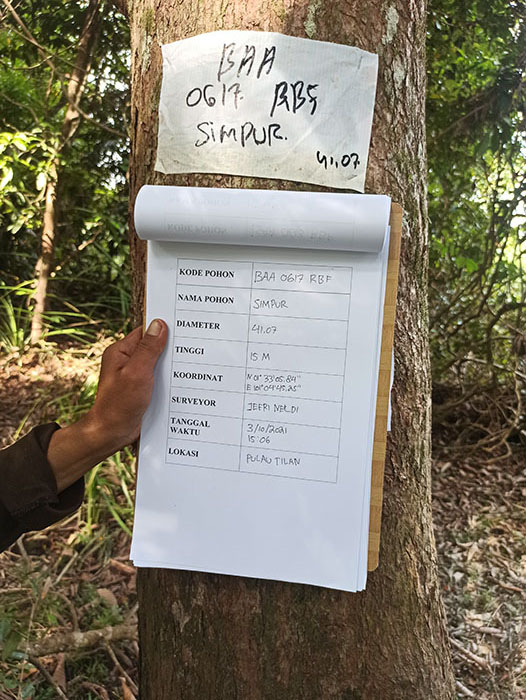 BAA
0617 RBF
SIMPUR.
41.07
KODE POHON BAA 0617 RBF
NAMA POHON SIMPUR
DIAMETER 41.07
TINGGI 15 M
KOORDINAT N 01° 33' 05.84"
E 101° 04' 45.25"
SURVEYOR JEFRI NELDI
TANGGAL 3/10/2021
WAKTU 15 06
LOKASI PULAU TILAN